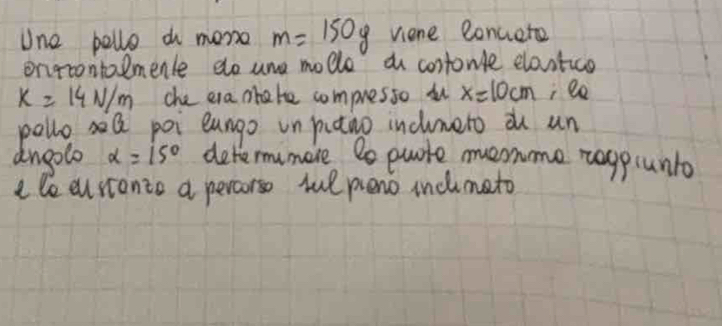 Una palla di massa m = 150g viene lanciata
orizzontalmente da una molla di costante elastica
K = 14 N/m che era stata compressa di x=10cm ; la
palla sale poi lungo un piano inclinato di un
angolo α = 15° determinare la quota massima raggiunta
e la distanza d percorsa sul piano inclinato